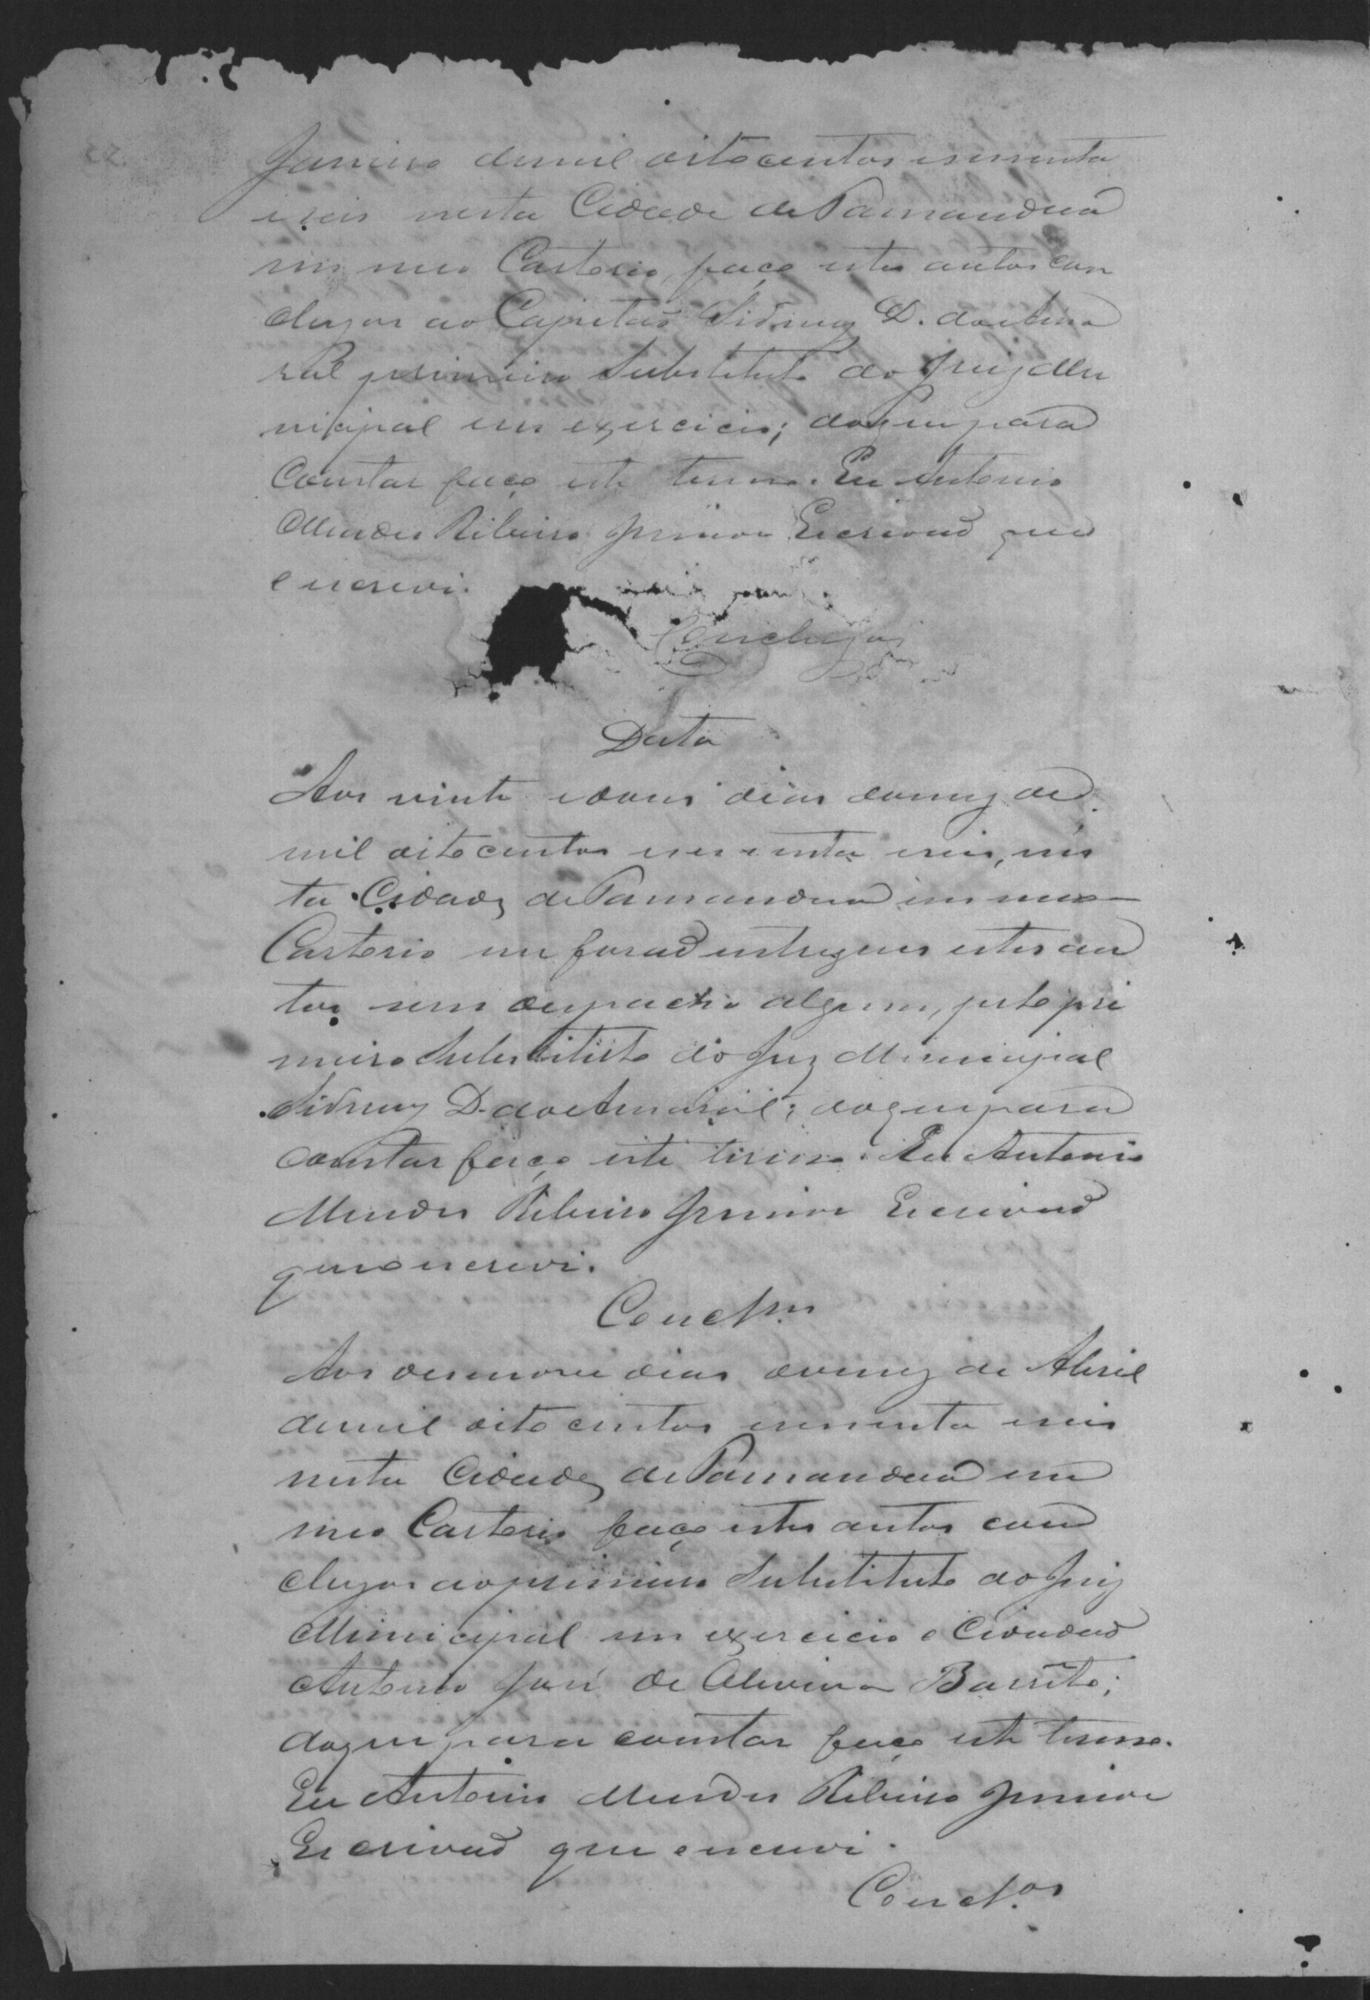 Janeiro demil oitocentos esessenta
eseis nesta Cidade de Parnandua
em meo Cartorio, faço estes autos con
cluzos ao Capitaõ Sidney D. do Ama
ral primeiro Substituto do Juiz Mu
nicipal em exercicio; doque para
Constar faço este termo. Eu Antonio
Mendes Ribeiro Junior Escrivaõ que
escrevi.
Concluzos
Data
Aos vinte edous dias domez de
mil oitocentos esessenta eseis, nes
ta Cidade de Parnandua em meo
Cartorio me foraõ entregues estes au
tos sem despacho algum, pelo pri
meiro Substituto do Juiz Municipal
Sidney D. do Amaral; doque para
constar faço este termo. Eu Antonio
Mendes Ribeiro Junior Escrivaõ
que escrevi.
Conclm
Aos desenove dias domez de Abril
demil oitocentos esessenta eseis
nesta Cidade de Parnandua em
meo Cartorio faço estes autos con
cluzos ao primeiro Substituto do Juiz
Municipal em exercicio o Cidadaõ
Antonio José de Oliveira Barreto;
doque para constar faço este termo.
Eu Antonio Mendes Ribeiro Junior
Escrivaõ que escrevi.
Concl.os